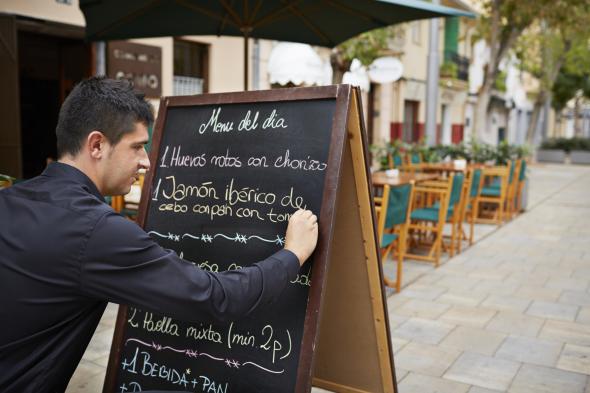 Menu del dia
1 Huevos rotos con chorizo
1 Jamón ibérico de
cebo con pan con tom
2 Paella mixta (min. 2p)
+1 BEBIDA* + PAN